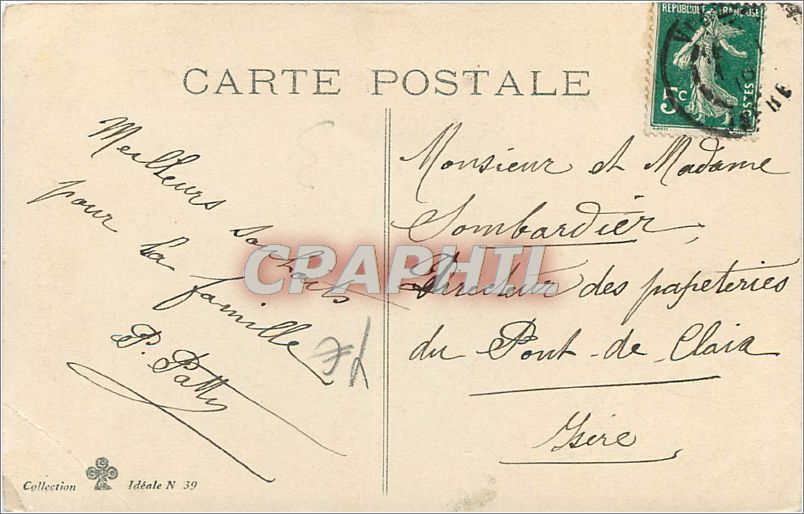 CARTE POSTALE
REPUBLIQUE FRANÇAISE
5c
POSTES
Meilleurs souhaits
pour la famille
P. Patty
Monsieur et Madame
Sombardier,
Directeur des papeteries
du Pont-de-Claix
Isère
CPAPHIL
Collection Idéale N 39